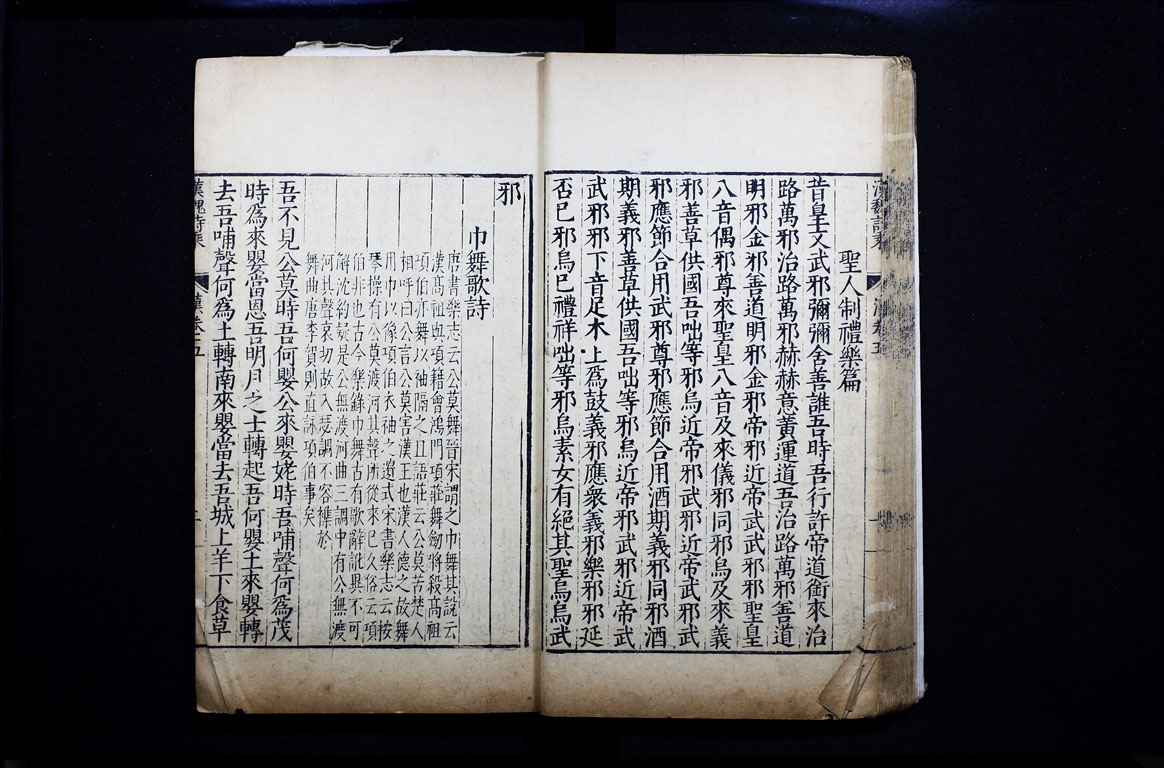 聖人制禮樂篇
昔皇文武邪彌彌舍善誰吾時吾行許帝道銜來治
路萬邪治路萬邪赫赫意黃運道吾治路萬邪善道
明邪金邪善道明邪金邪帝邪近帝武武邪邪聖皇
八音偶邪尊來聖皇八音及來儀邪同邪烏及來義
邪善草供國吾咄等邪烏近帝邪武邪近帝武邪武
邪應節合用武邪尊邪應節合用酒期義邪同邪酒
期義邪善草供國吾咄等邪烏近帝邪武邪近帝武
武邪邪下音足木上為鼓義邪應眾義邪樂邪邪延
否已邪烏已禮祥咄等邪烏素女有絕其聖烏烏武
邪
巾舞歌詩
唐書樂志云公莫舞晉宋謂之巾舞其說云
漢高祖與項籍會鴻門項莊舞劒將殺高祖
項伯亦舞以袖隔之且語莊云公莫苦楚人
相呼曰公言公莫害漢王也漢人德之故舞
用巾以像項伯衣袖之遺式宋書樂志云按
琴操有公莫渡河其聲所從來已久俗云項
伯非也古今樂錄巾舞古有歌辭訛異不可
解沈約疑是公無渡河曲三調中有公無渡
河其聲哀切故入瑟調不容雜於
舞曲唐李賀則直詠項伯事矣
吾不見公莫時吾何嬰公來嬰姥時吾哺聲何為茂
時為來嬰當恩吾明月之士轉起吾何嬰土來嬰轉
去吾哺聲何為土轉南來嬰當去吾城上羊下食草
漢魏詩乘
漢卷五